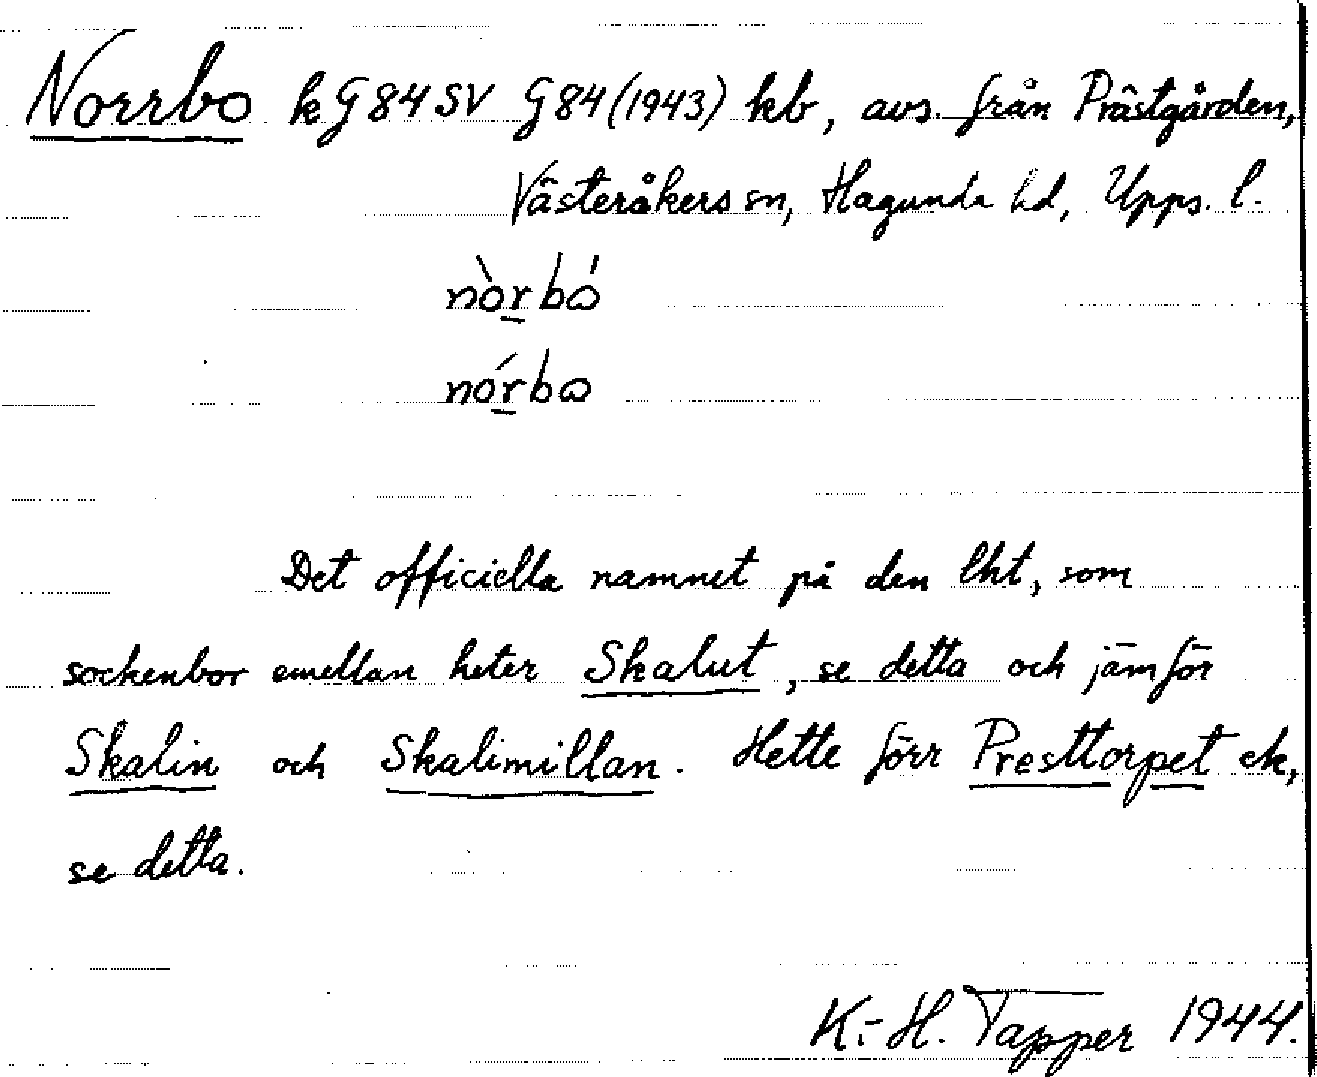 Norrbo k G84SV G84(1943) kb, avs. från Prästgården,
Västeråkers sn, Hagunda hd, Upps. l.
nòrbó
nórbω
Det officiella namnet på den lht, som
sockenbor emellan heter Skalut, se detta och jämför
Skalin och Skalimillan. Hette förr Presttorpet ek,
se detta.
K.-H. Tapper 1944.